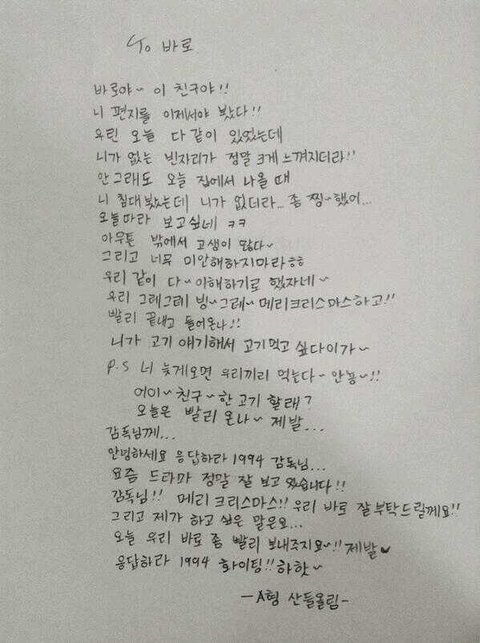 To 바로
바로야~ 이 친구야!!
니 편지를 이제서야 봤다!!
우린 오늘 다 같이 있었는데
니가 없는 빈자리가 정말 크게 느껴지더라!!
안그래도 오늘 집에서 나올 때
니 침대봤는데 니가 없더라... 좀 찡~했어...
오늘따라 보고싶네 ㅋㅋ
아무튼 밖에서 고생이 많다~
그리고 너무 미안해하지마라ㅎㅎ
우리 같이 다~이해하기로 했자네~
우리 그래그래 빙~그래~ 메리크리스마스하고!!
빨리 끝내고 들어온나!!
니가 고기 얘기해서 고기먹고 싶다이가~
P.S 너 늦게오면 우리끼리 먹는다~ 안뇽~!!
어이~ 친구~한고기 할래?
오늘은 빨리 온나~ 제발...
감독님께...
안녕하세요 응답하라 1994 감독님...
요즘 드라마 정말 잘 보고 있습니다!!
감독님!! 메리크리스마스!! 우리 바로 잘부탁드릴께요!!
그리고 제가 하고 싶은 말은요...
오늘 우리 바로 좀 빨리 보내주지요~!! 제발♥
응답하라 1994 화이팅!! 하핫~
-A형 산들올림-